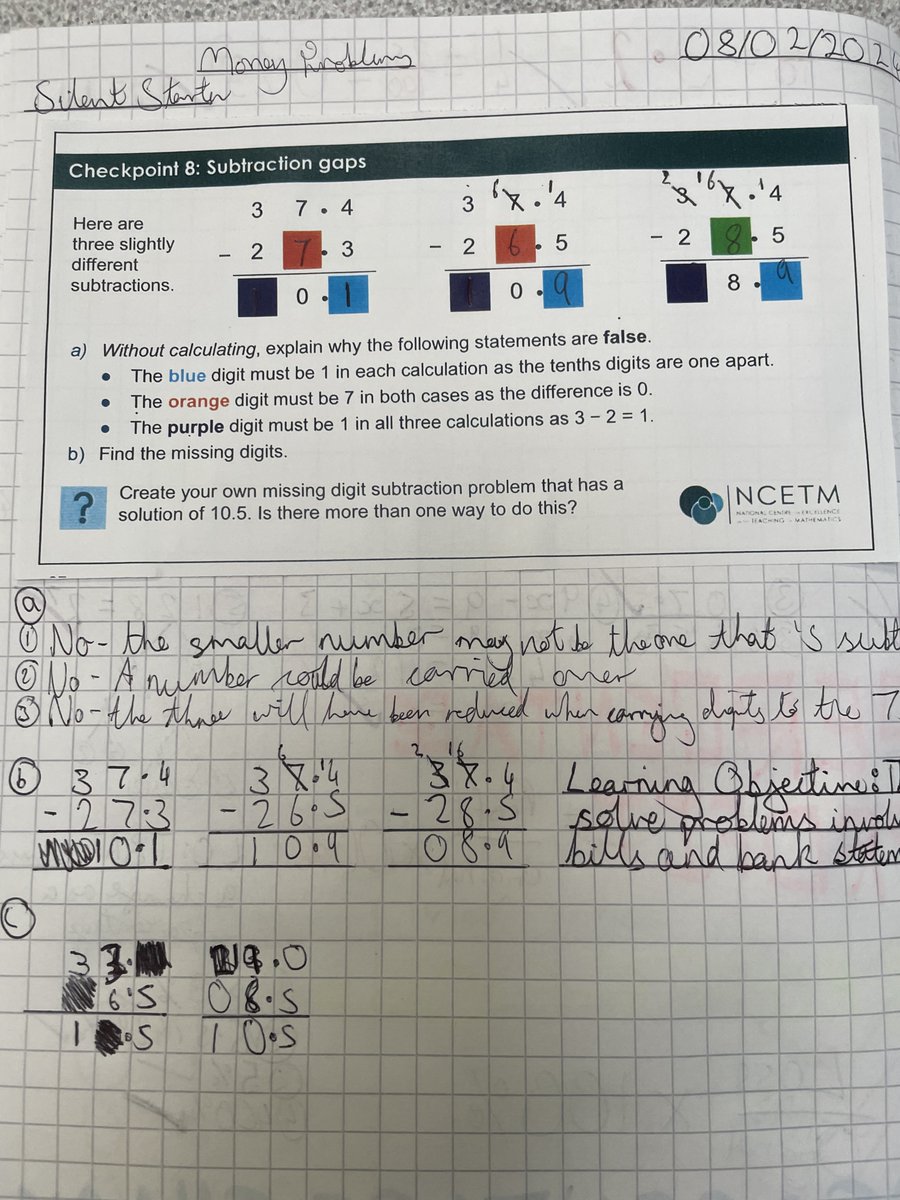 Money Problems 08/02/202
Silent Starter
Checkpoint 8: Subtraction gaps
Here are
three slightly
different
subtractions.
3 7.4 3 6 7.14 2 3 16 7.14
- 2 7.3 - 2 6.5 - 2 8.5
1 0.1 1 0.9 8.9
a) Without calculating, explain why the following statements are false.
• The blue digit must be 1 in each calculation as the tenths digits are one apart.
• The orange digit must be 7 in both cases as the difference is 0.
• The purple digit must be 1 in all three calculations as 3 – 2 = 1.
b) Find the missing digits.
? Create your own missing digit subtraction problem that has a
solution of 10.5. Is there more than one way to do this?
NCETM
NATIONAL CENTRE for EXCELLENCE
in the TEACHING of MATHEMATICS
a
1 No - the smaller number may not be the one that's subt
2 No - A number could be carried over
3 No - the three will have been reduced when carrying digits to the 7
b 3 7.4 3 6 7.14 2 3 16 7.4 Learning Objective:
- 2 7.3 - 2 6.5 - 2 8.5 solve problems involv
1 0.1 1 0.9 0 8.9 bills and bank statem
c
3 .0
6.5 0 8.5
1 .5 1 0.5